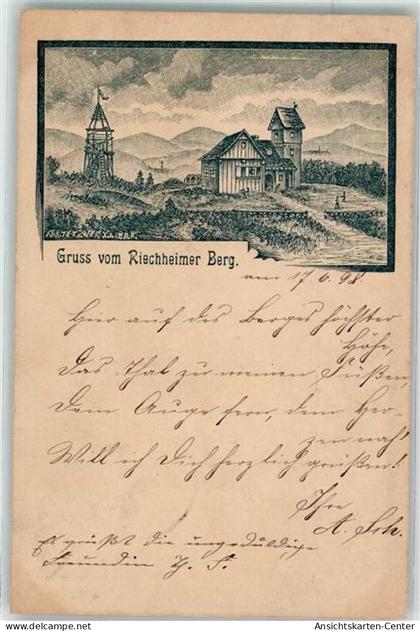 Gruss vom Riechheimer Berg.
am 17. 6. 98.
Hier auf des Berges höchster
Höhe,
Das Thal zu meinen Füßen,
Dem Auge fern, dem Her-
zen nah'
Will ich Dich herzlich grüßen!
Ihre
A. Sch.
Es grüßt die ungeduldige
Freundin
Ansichtskarten-Center